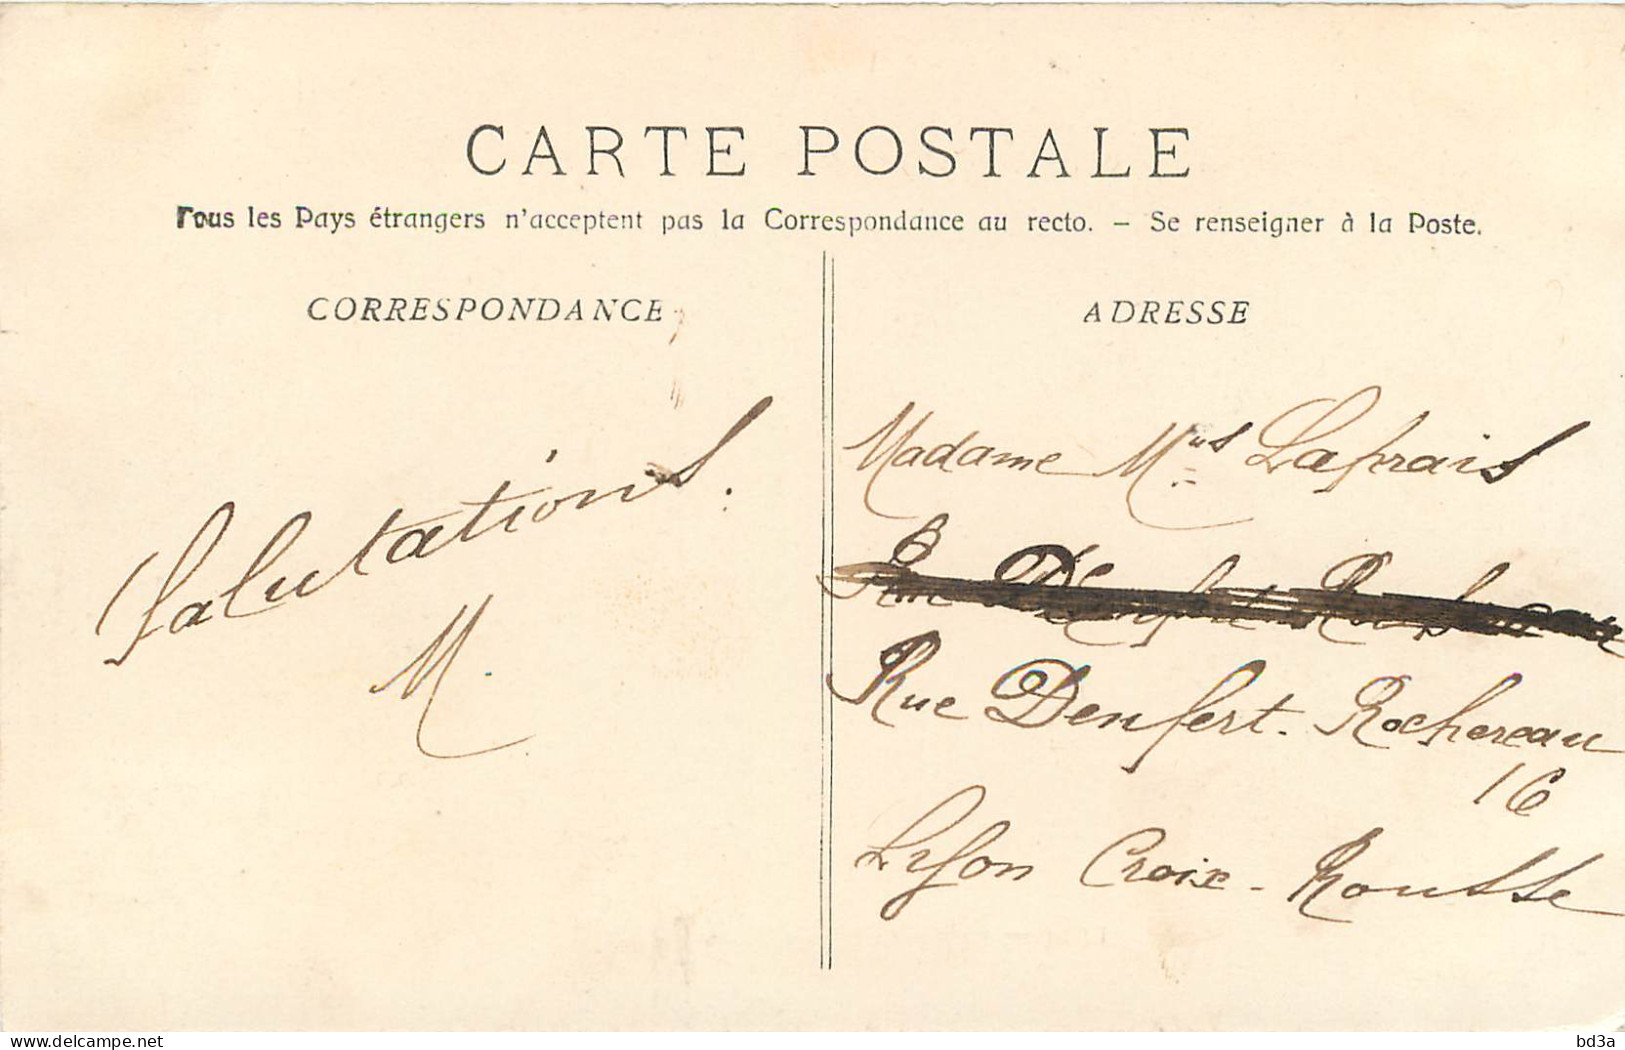 CARTE POSTALE
Tous les Pays étrangers n'acceptent pas la Correspondance au recto. – Se renseigner à la Poste.
CORRESPONDANCE
Salutations.
M.
ADRESSE
Madame Lafrais
Rue Denfert-Rochereau
16
Lyon Croix-Rousse
delcampe.net
bd3a